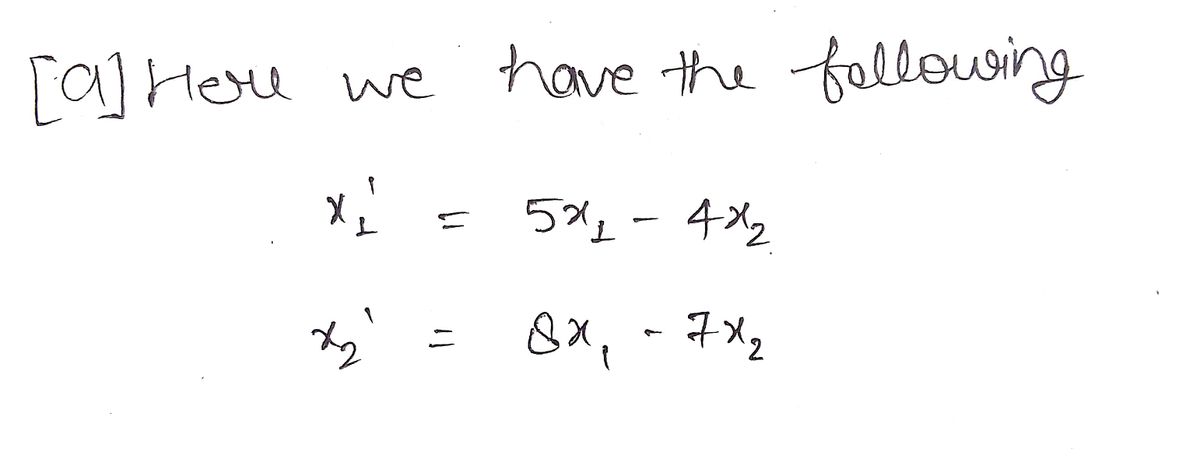 [a] Here we have the following
x₁' = 5x₁ - 4x₂
x₂' = 8x₁ - 7x₂